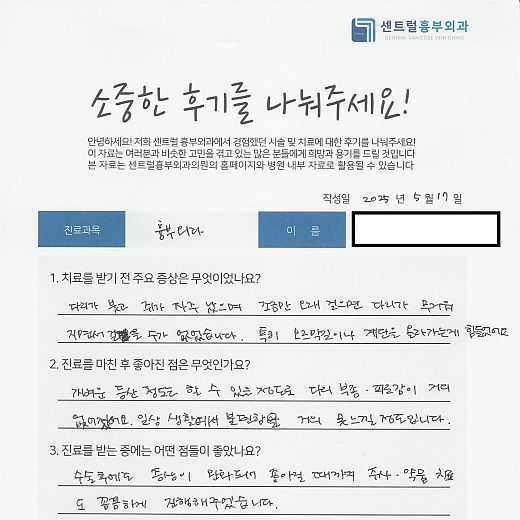 센트럴흉부외과
CENTRAL VARICOSE VEIN CLINIC
소중한 후기를 나눠주세요!
안녕하세요! 저희 센트럴 흉부외과에서 경험했던 시술 및 치료에 대한 후기를 나눠주세요!
이 자료는 여러분과 비슷한 고민을 겪고 있는 많은 분들에게 희망과 용기를 드릴 것입니다
본 자료는 센트럴흉부외과의원의 홈페이지와 병원 내부 자료로 활용될 수 있습니다
작성일 2025 년 5 월 17 일
진료과목 흉부외과 이 름
1. 치료를 받기 전 주요 증상은 무엇이었나요?
다리가 붓고 쥐가 자주 났으며 조금만 오래 걸으면 다리가 무거워
지면서 걸을 수가 없었습니다. 특히 오르막길이나 계단을 올라가는게 힘들었어요
2. 진료를 마친 후 좋아진 점은 무엇인가요?
가벼운 등산 정도는 할 수 있을 정도로 다리 부종·피로감이 거의
없어졌어요. 일상 생활에서 불편함을 거의 못느낄 정도입니다.
3. 진료를 받는 중에는 어떤 점들이 좋았나요?
수술후에도 증상이 완화되어 좋아질 때까지 주사·약물 치료
도 꼼꼼하게 진행해주었습니다.